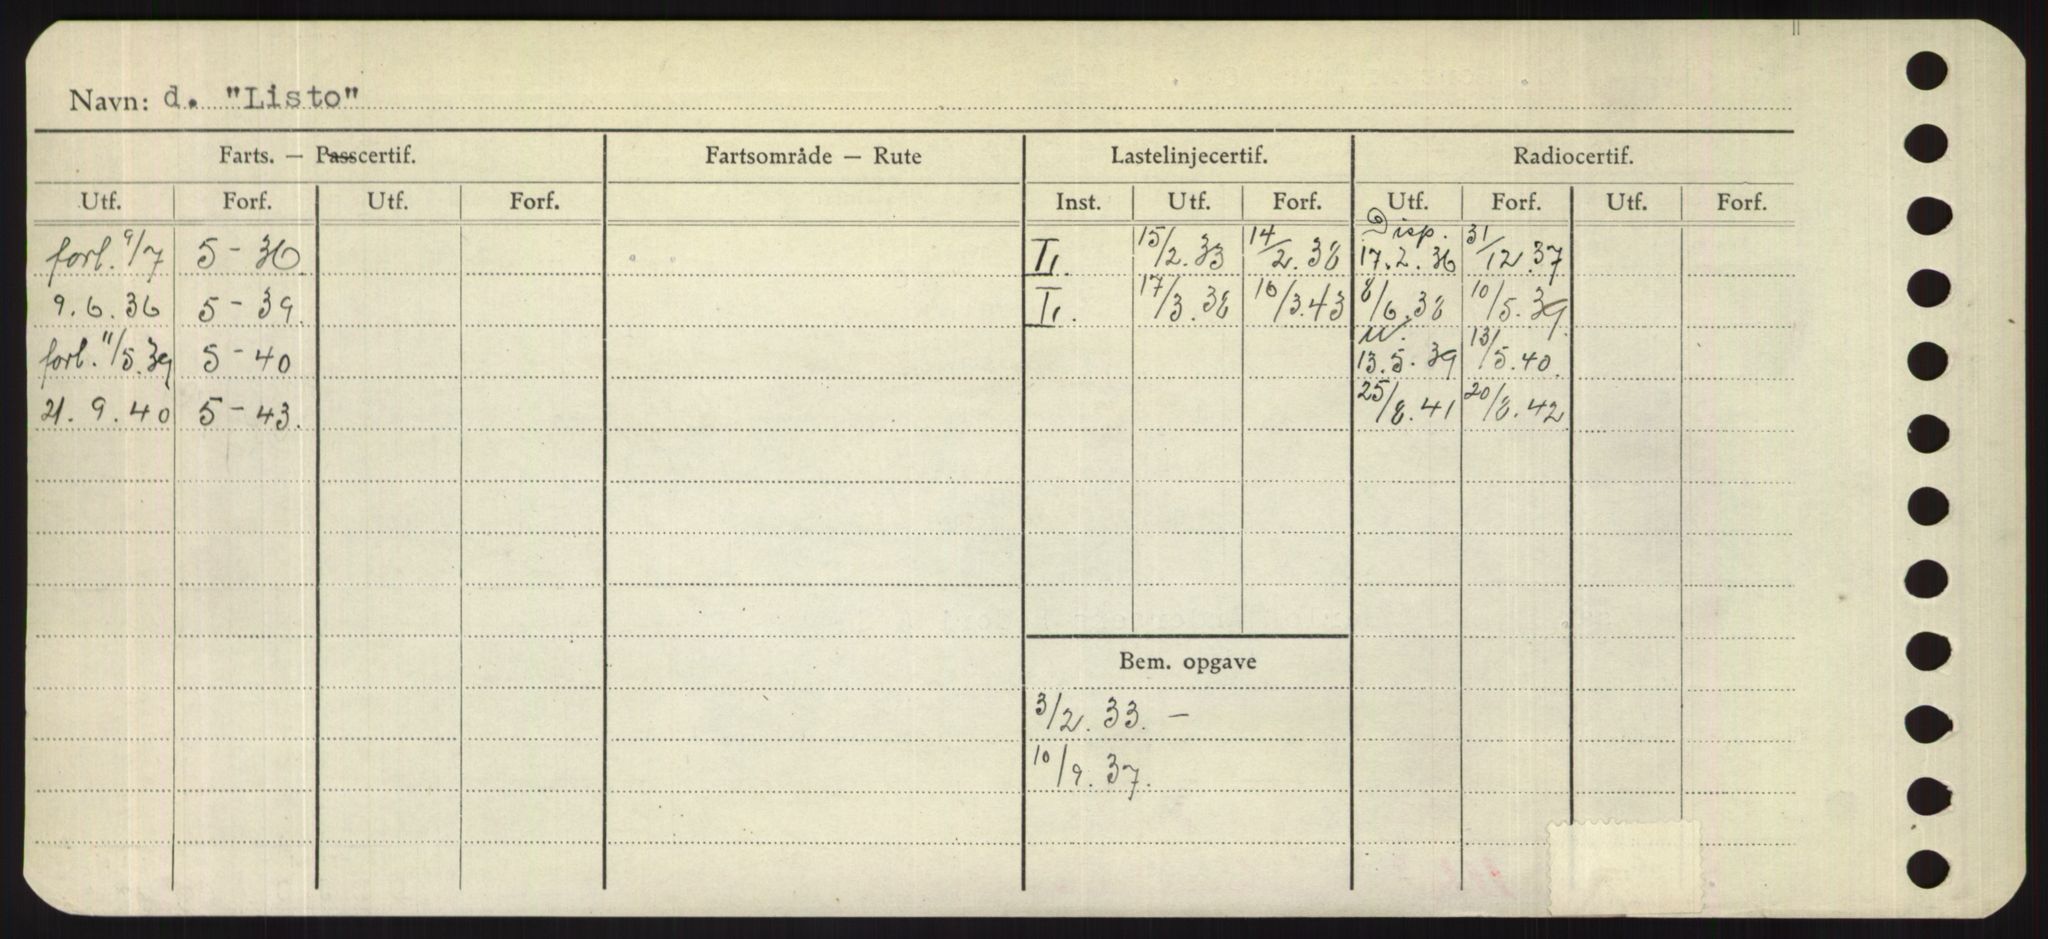 Navn: d. "Listo"
Farts. — Passcertif. Fartsområde — Rute Lastelinjecertif. Radiocertif.
Utf. Forf. Utf. Forf. Inst. Utf. Forf. Utf. Forf. Utf. Forf.
forl. 9/7 5 - 36 I. 15/2. 33 14/2. 38 Disp. 17. 2. 36 31/12. 37
9. 6. 36 5 - 39. I. 17/3. 38 16/3. 43 8/6. 38 10/5. 39.
forl. 11/5. 39 5 - 40 13. 5. 39 13/5. 40.
21. 9. 40 5 - 43. 25/8. 41 20/8. 42
Bem. opgave
3/2. 33. —
10/9. 37.